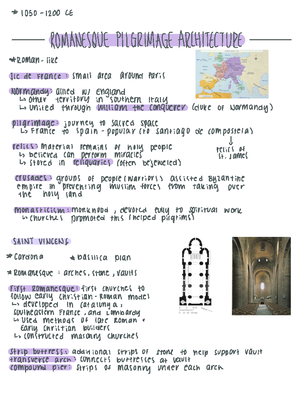 * 1050-1200 CE
ROMANESQUE PILGRIMAGE ARCHITECTURE
* Roman-like
Ile de France: small area around Paris
Normandy: allied w/ England
↳ other territory in "southern Italy
↳ united through William the Conquerer (duke of Normandy)
pilgrimage: journey to sacred space
↳ France to Spain - popular (to Santiago de Compostela)
relics of St. James
relics: material remains of holy people
↳ believed can perform miracles
↳ stored in reliquaries (often bejeweled)
crusades: groups of people (warriors) assisted Byzantine
empire in preventing Muslim forces from taking over
the holy land
monasticism: monkhood, devoted fully to spiritual work
↳ churches promoted this (helped pilgrims)
SAINT VINCENS
* Cardona * basilica plan
* Romanesque: arches, stone, vaults
First Romanesque: first churches to
follow early Christian-Roman model
↳ developed in Catalunya,
southeastern France, and Lombardy
↳ used methods of late Roman +
early Christian builders
↳ constructed masonry churches
strip buttress: additional strips of stone to help support vault
transverse arch: connects buttresses at vault
compound pier: strips of masonry under each arch